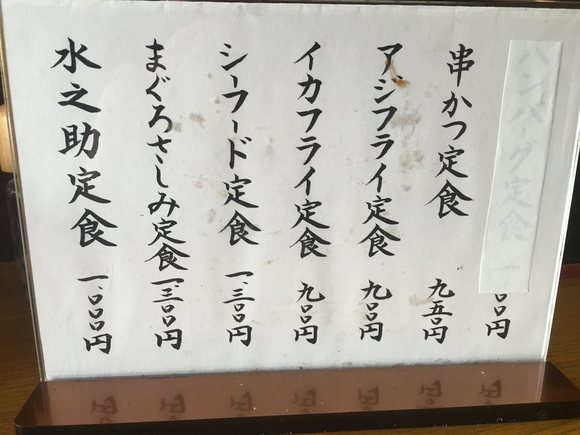 ハンバーグ定食 一、〇〇〇円
串かつ定食 九五〇円
アジフライ定食 九〇〇円
イカフライ定食 九〇〇円
シーフード定食 一、三〇〇円
まぐろさしみ定食 一、三〇〇円
水之助定食 一、〇〇〇円